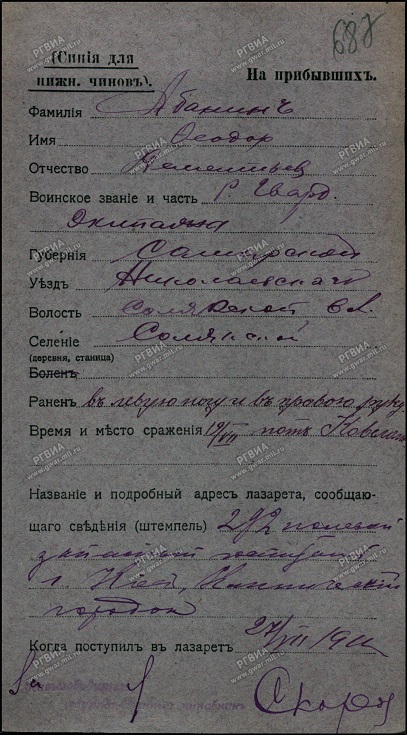 687
(Синія для
нижн. чиновъ).
На прибывшихъ.
Фамилія Абанинъ
Имя Ѳеодор
Отчество
Воинское званіе и часть Р. Гвард.
Губернія Самарской
Уѣздъ Николаевскаго
Волость Солянской вл.
Селеніе Солянской
(деревня, станица)
Боленъ
Раненъ въ левую ногу и въ правого руку
Время и мѣсто сраженія 19/VII подъ
Названіе и подробный адресъ лазарета, сообщаю-
щаго свѣдѣнія (штемпель) 292 полевой
запасный
г. Кіев, Клиническій
городок
Когда поступилъ въ лазаретъ 24/VII 191
РГВИА
www.gwar.mil.ru